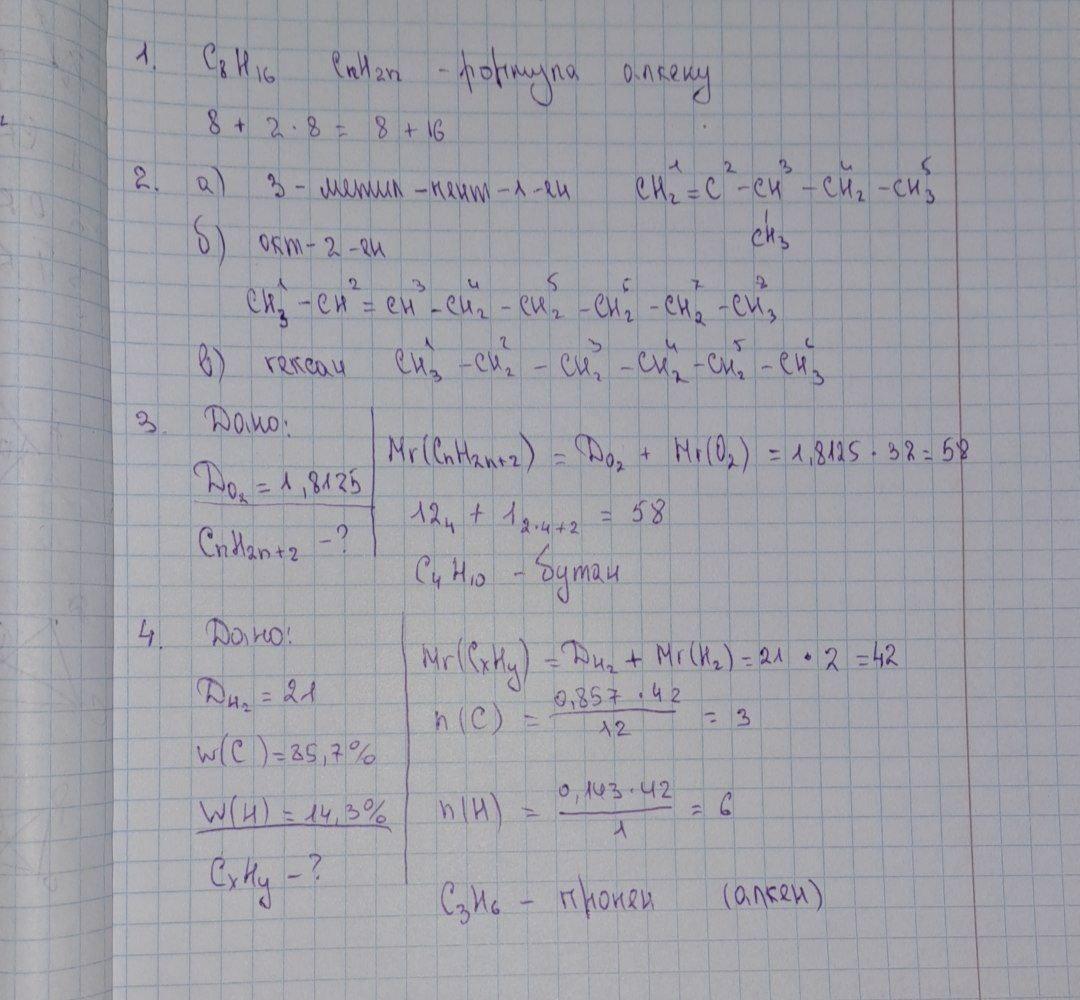 1. C₈H₁₆ CnH2n - формула алкену
8 + 2·8 = 8 + 16
2. а) 3 - метил - пент - 1 - ен CH₂¹ = C² - CH³ - CH₂⁴ - CH₃⁵
CH₃
б) окт - 2 - ен
CH₃¹ - CH² = CH³ - CH₂⁴ - CH₂⁵ - CH₂⁶ - CH₂⁷ - CH₃⁸
в) гексан CH₃¹ - CH₂² - CH₂³ - CH₂⁴ - CH₂⁵ - CH₃⁶
3. Дано:
D_O₂ = 1,8125
CnH2n+2 - ?
Mr(CnH2n+2) = D_O₂ + Mr(O₂) = 1,8125 · 32 = 58
12₄ + 1₂·₄₊₂ = 58
C₄H₁₀ - бутан
4. Дано:
D_H₂ = 21
W(C) = 85,7%
W(H) = 14,3%
CxHy - ?
Mr(CxHy) = D_H₂ + Mr(H₂) = 21 · 2 = 42
n(C) = 0,857 · 42 / 12 = 3
n(H) = 0,143 · 42 / 1 = 6
C₃H₆ - пропен (алкен)